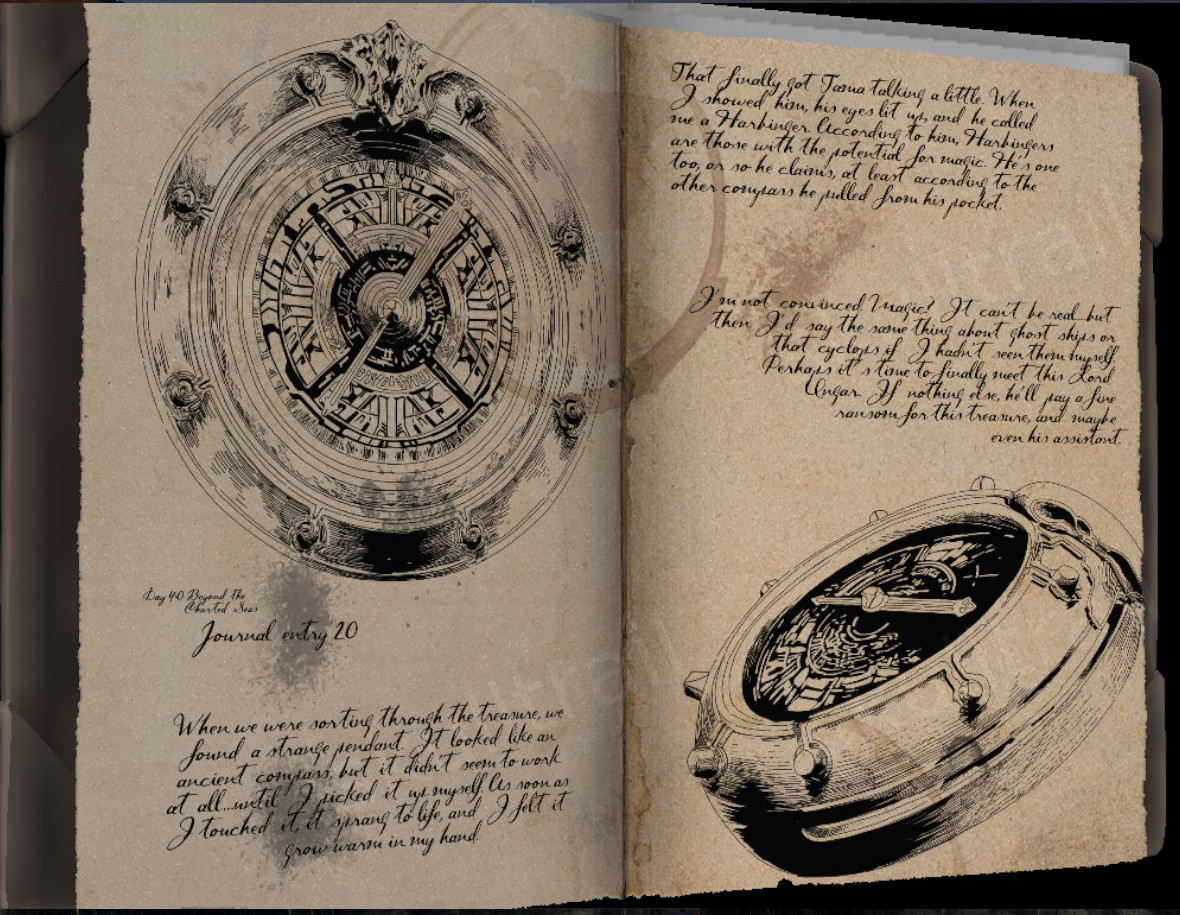 Day 40 Beyond the
Charted Seas
Journal entry 20
When we were sorting through the treasure, we
found a strange pendant. It looked like an
ancient compass, but it didn't seem to work
at all...until I picked it up myself. As soon as
I touched it, it sprang to life, and I felt it
grow warm in my hand.
That finally got Tasna talking a little. When
I showed him, his eyes lit up, and he called
me a Harbinger. According to him, Harbingers
are those with the potential for magic. He's one
too, or so he claims, at least according to the
other compass he pulled from his pocket.
I'm not convinced. Magic? It can't be real...but
then I'd say the same thing about ghost ships or
that cyclops if I hadn't seen them myself.
Perhaps it's time to finally meet this Lord
Ungar. If nothing else, he'll pay a fine
ransom for this treasure, and maybe
even his assistant.